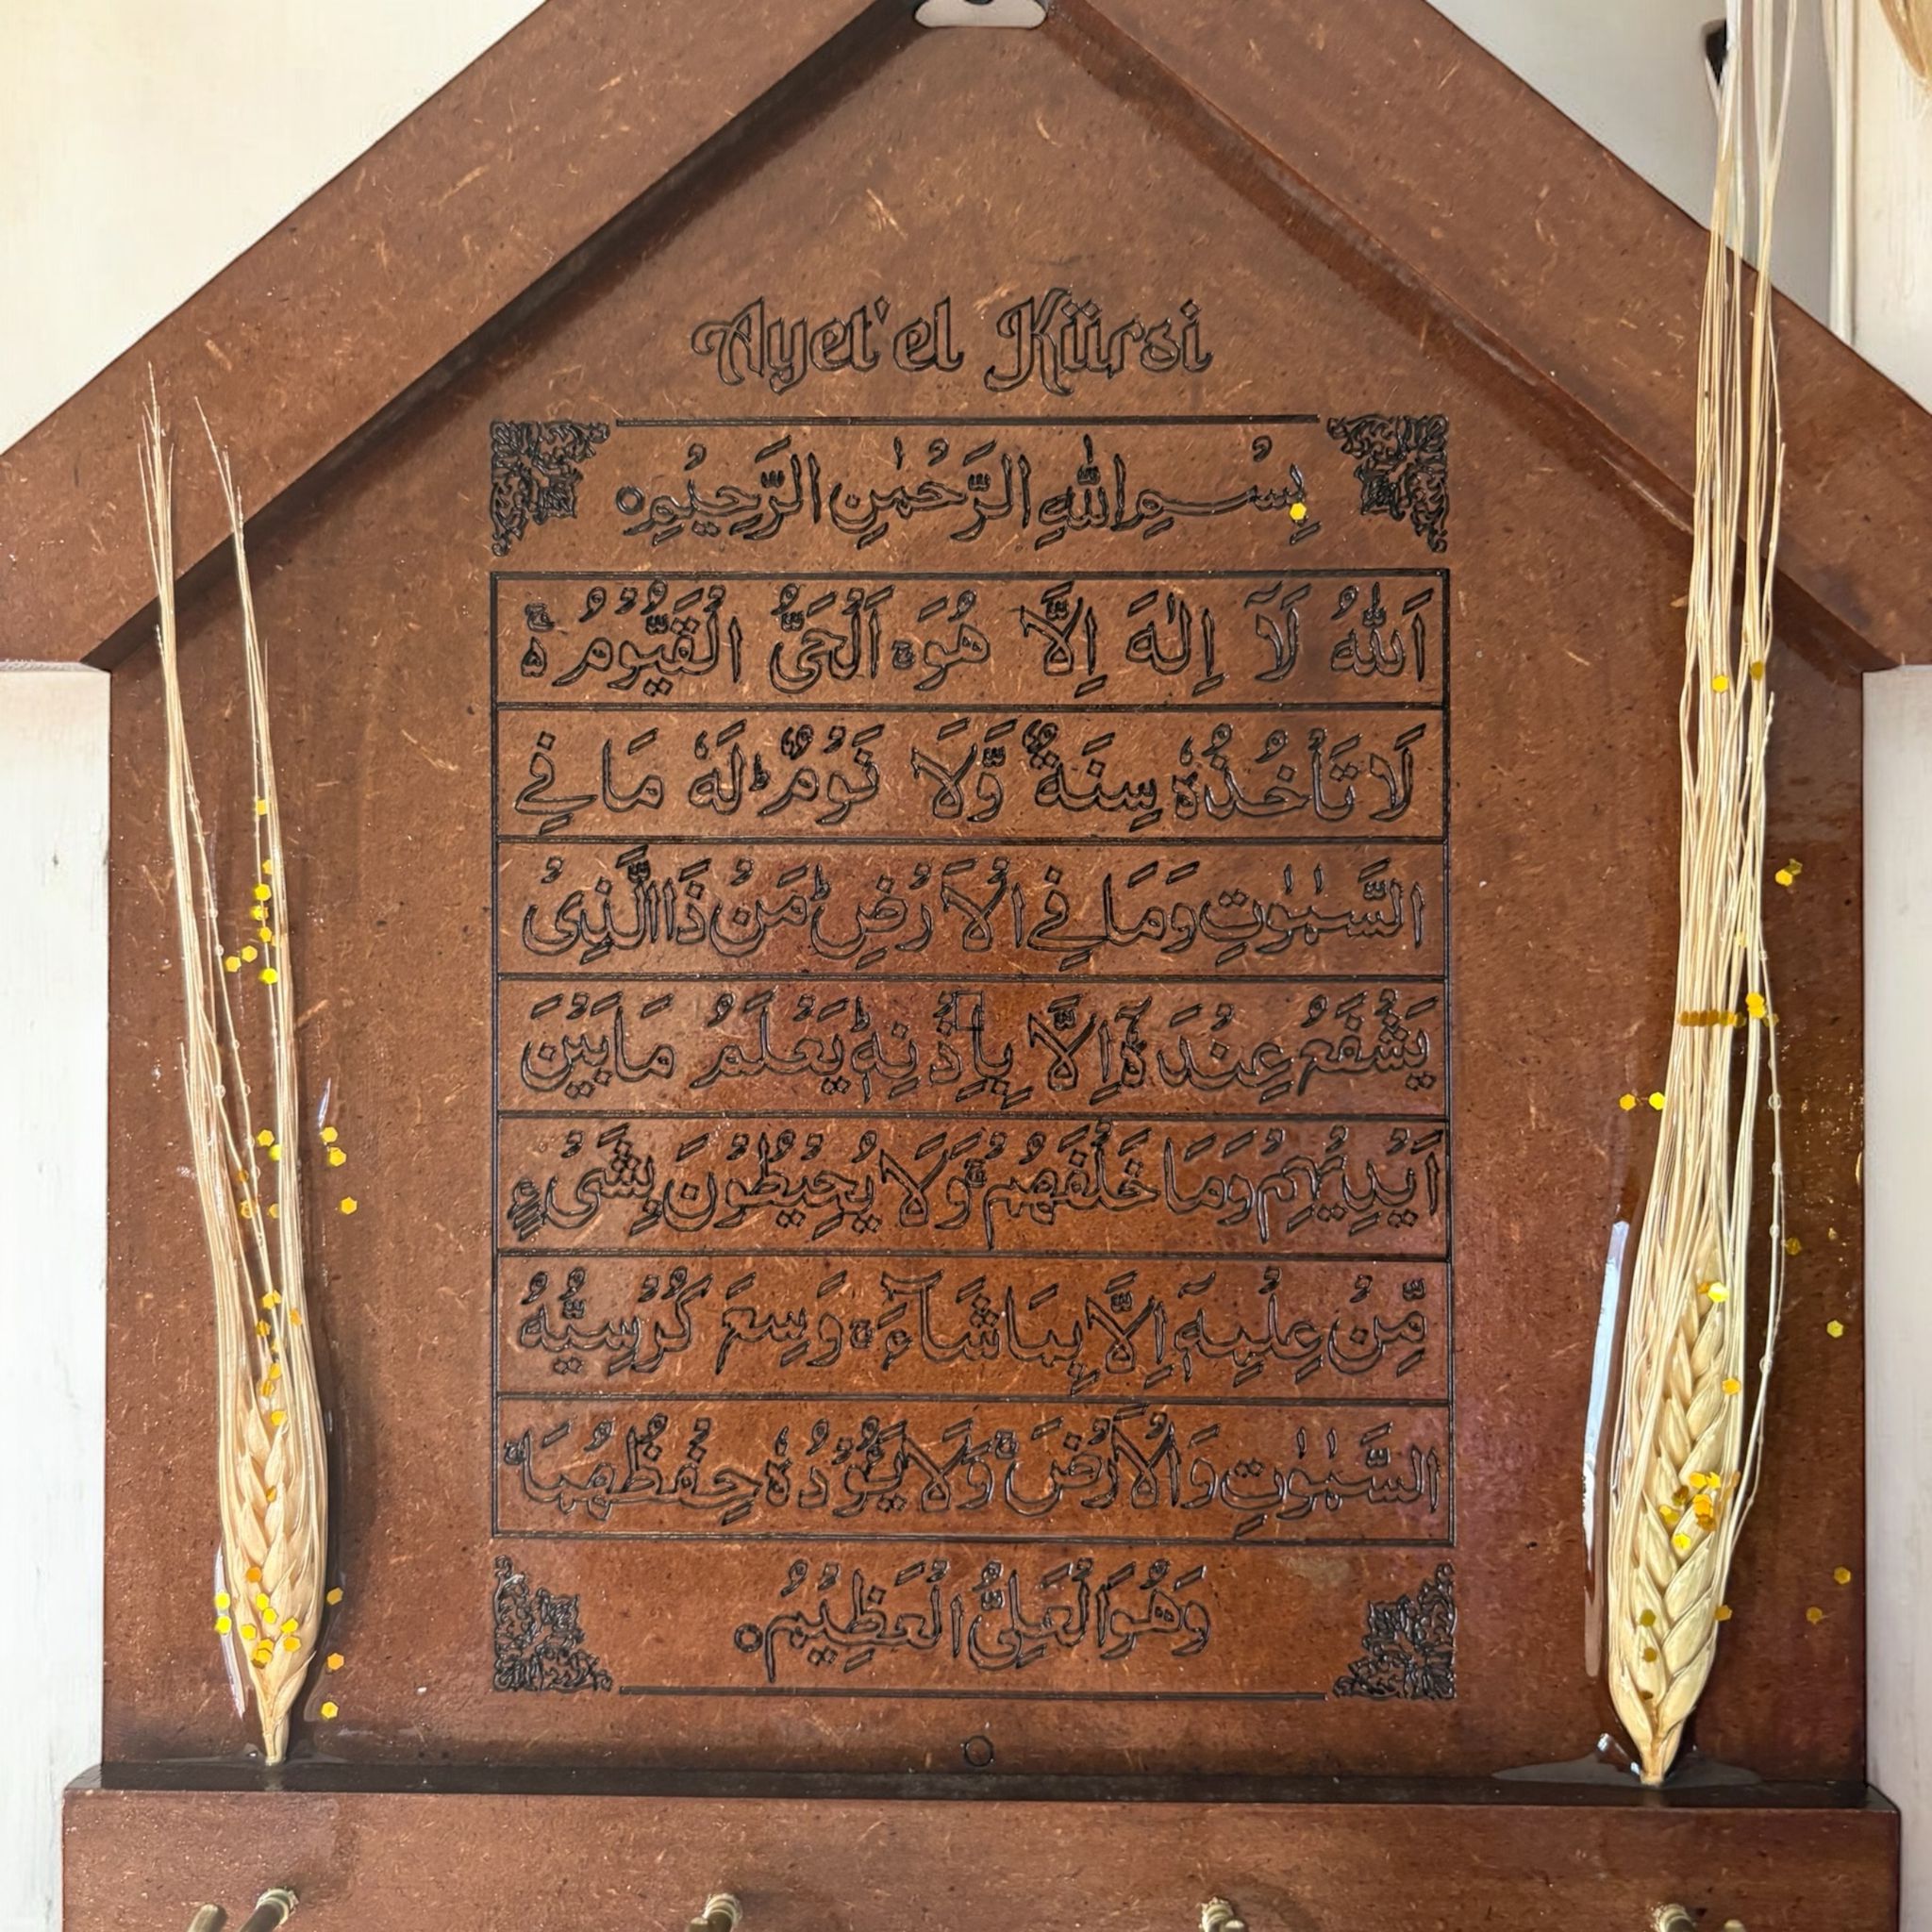 Ayet'el Kürsi
بِسْمِ اللّٰهِ الرَّحْمٰنِ الرَّحِيْمِ
اَللّٰهُ لَآ اِلٰهَ اِلَّا هُوَۚ اَلْحَىُّ الْقَيُّوْمُ ۚ
لَا تَأْخُذُهٗ سِنَةٌ وَّلَا نَوْمٌ ؕ لَهٗ مَا فِي
السَّمٰوٰتِ وَمَا فِي الْاَرْضِ ؕ مَنْ ذَا الَّذِىْ
يَشْفَعُ عِنْدَهٗٓ اِلَّا بِاِذْنِهٖ ؕ يَعْلَمُ مَا بَيْنَ
اَيْدِيْهِمْ وَمَا خَلْفَهُمْ ۚ وَلَا يُحِيْطُوْنَ بِشَىْءٍ
مِّنْ عِلْمِهٖٓ اِلَّا بِمَا شَآءَ ۚ وَسِعَ كُرْسِيُّهُ
السَّمٰوٰتِ وَالْاَرْضَ ۚ وَلَا يَــُٔوْدُهٗ حِفْظُهُمَا ۚ
وَهُوَ الْعَلِىُّ الْعَظِيْمُ